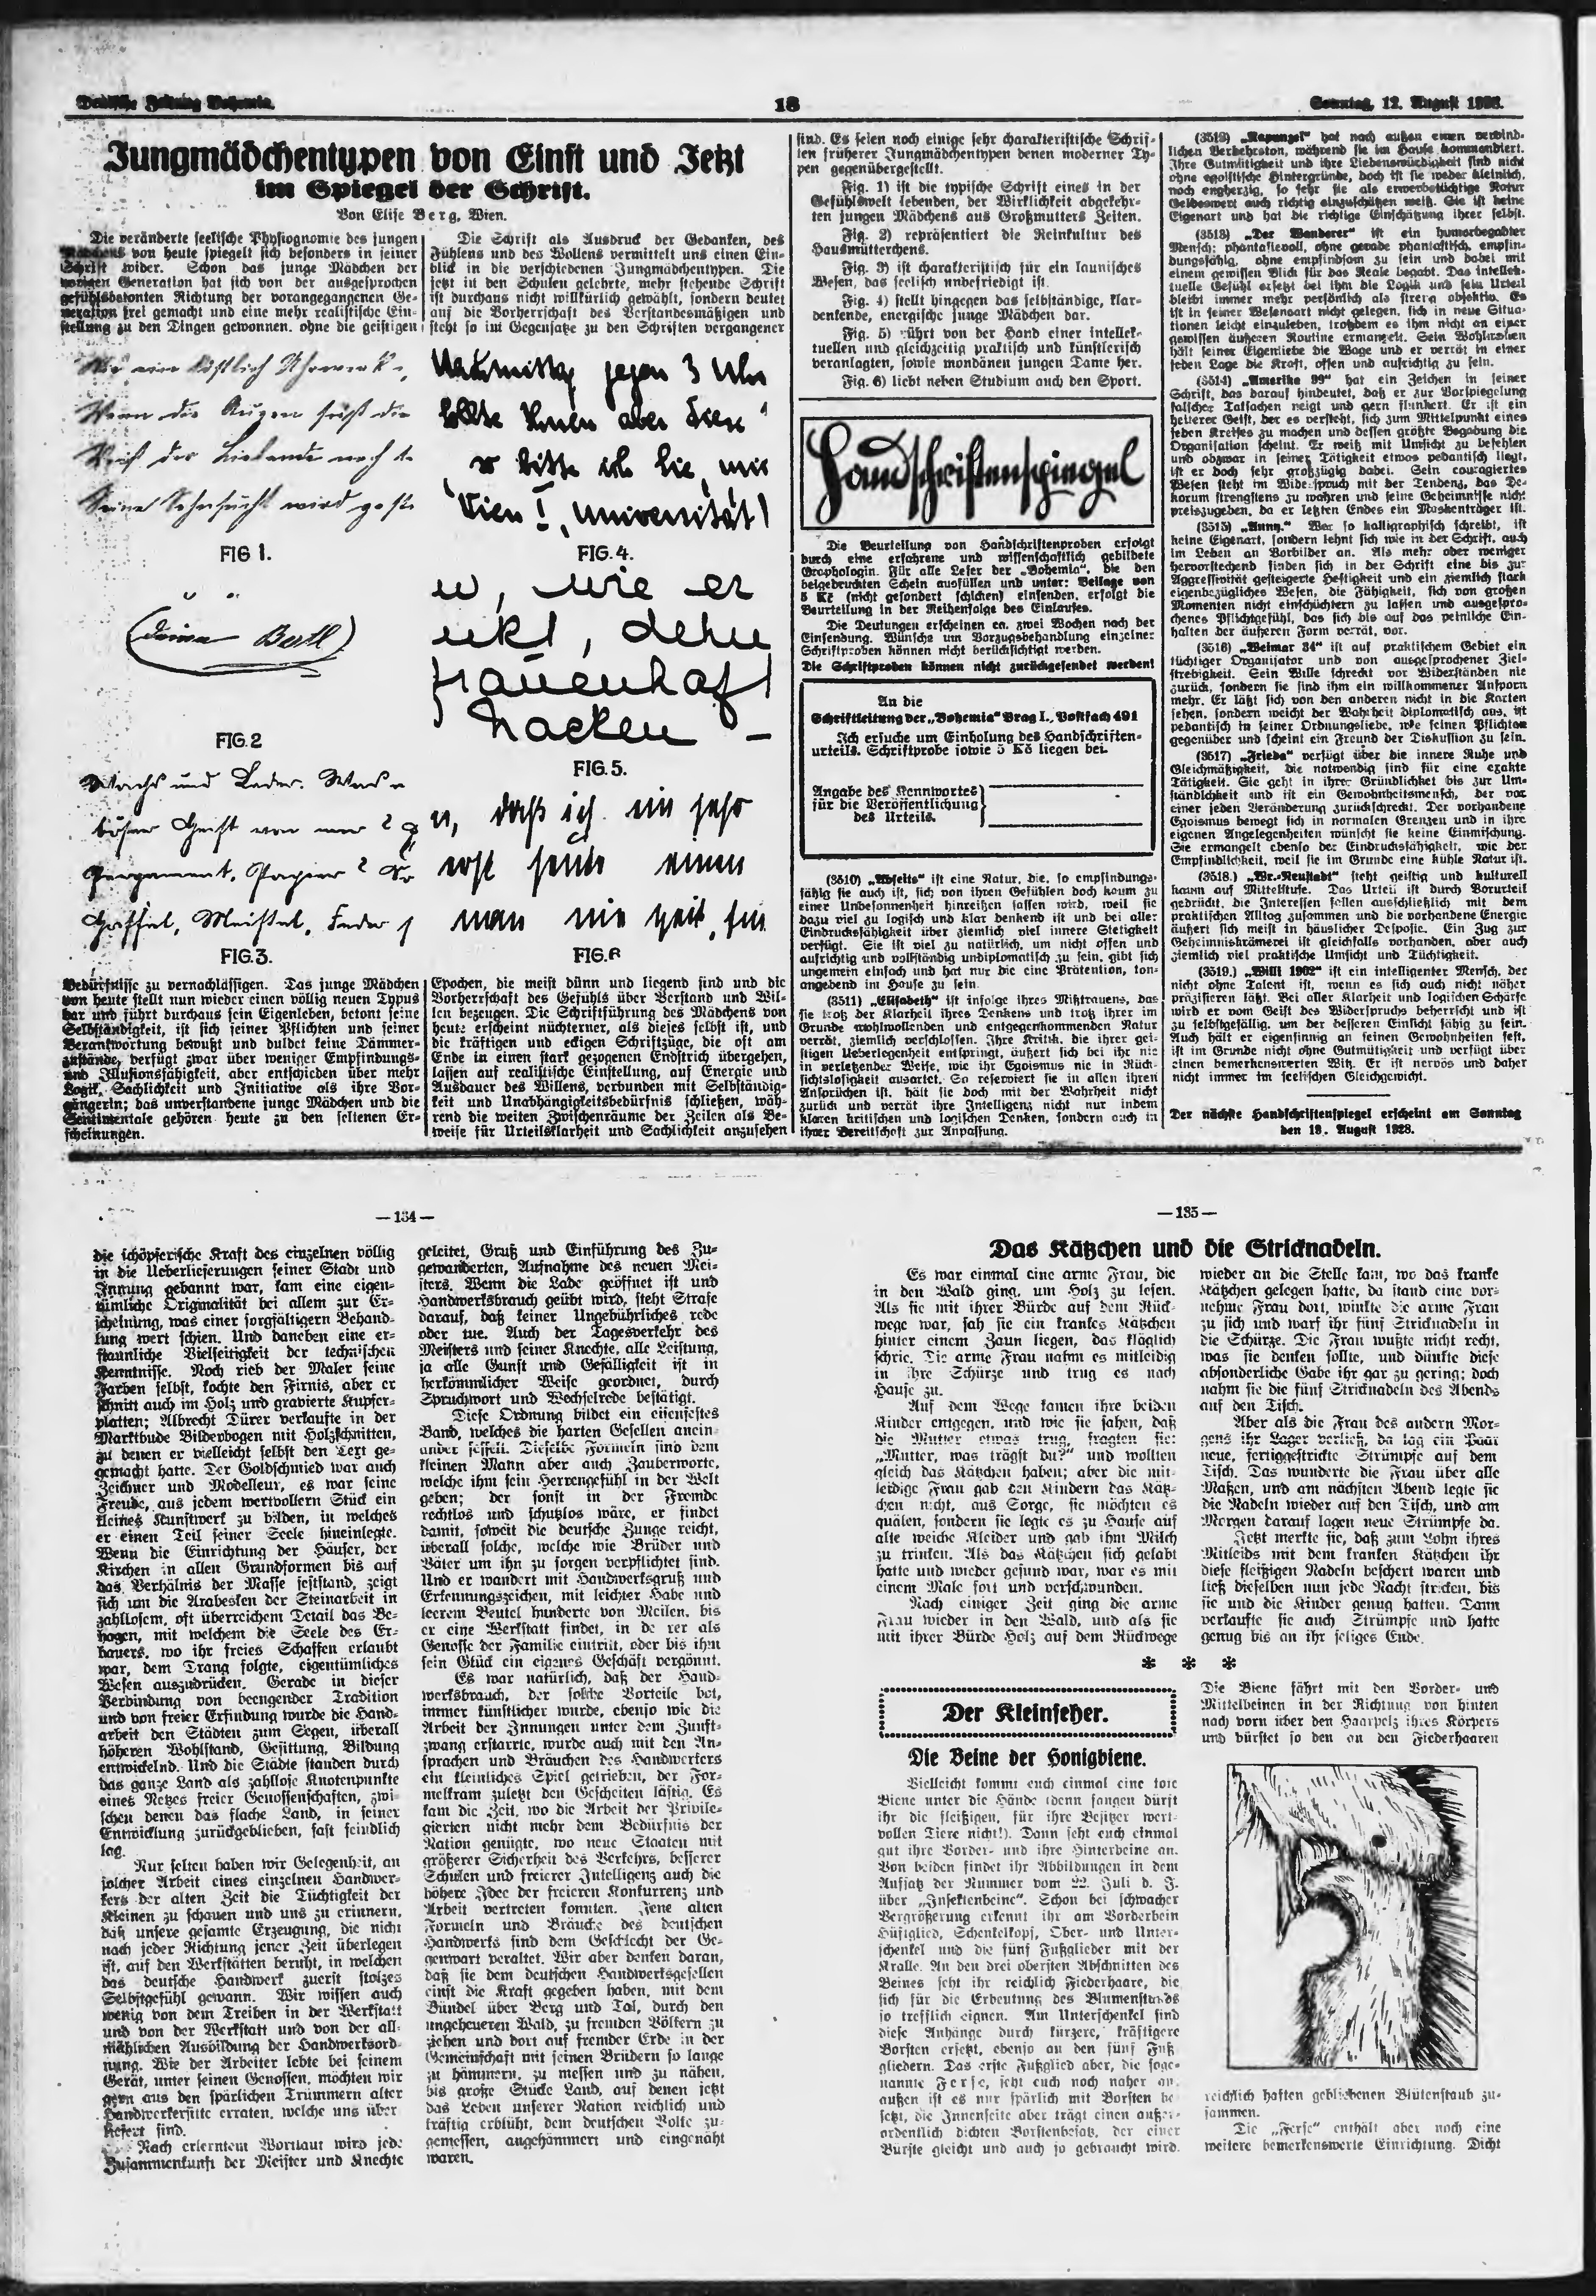 Deutsche Zeitung Bohemia.
18
Sonntag, 12. August 1928.
Jungmädchentypen von Einst und Jetzt
im Spiegel der Schrift.
Von Elise Berg, Wien.
Die veränderte seelische Physiognomie des jungen
Mädchens von heute spiegelt sich besonders in seiner
Schrift wider. Schon das junge Mädchen der
vorigen Generation hat sich von der ausgesprochen
gefühlsbetonten Richtung der vorangegangenen Ge-
neration frei gemacht und eine mehr realistische Ein-
stellung zu den Dingen gewonnen, ohne die geistigen
Die Schrift als Ausdruck der Gedanken, des
Fühlens und des Wollens vermittelt uns einen Ein-
blick in die verschiedenen Jungmädchentypen. Die
jetzt in den Schulen gelehrte, mehr stehende Schrift
ist durchaus nicht willkürlich gewählt, sondern deutet
auf die Vorherrschaft des Verstandesmäßigen und
steht so im Gegensatze zu den Schriften vergangener
Wie ein köstlich Uhrwerk,
Wenn die Augen
Weiß der Liebende noch
Seine Sehnsucht wird
FIG 1.
Nachmittag gegen 3 Uhr
sollte Ihnen aber diese
so bitte ich Sie, mir
Wien I, Universität
FIG. 4.
(Deine Bertl)
FIG. 2
w, wie er
ukt, dehn
frauenhaft
Nacken –
FIG. 5.
Wachs und Leder.
böser Geist von mir?
Pergament, Papier?
Griffel, Meißel, Feder
FIG. 3.
n, daß ich ein sehr
erst heute einen
man nie Zeit, für
FIG. 6
Bedürfnisse zu vernachlässigen. Das junge Mädchen
von heute stellt nun wieder einen völlig neuen Typus
dar und führt durchaus sein Eigenleben, betont seine
Selbständigkeit, ist sich seiner Pflichten und seiner
Verantwortung bewußt und duldet keine Dämmer-
zustände, verfügt zwar über weniger Empfindungs-
und Illusionsfähigkeit, aber entschieden über mehr
Logik, Sachlichkeit und Initiative als ihre Vor-
gängerin; das unverstandene junge Mädchen und die
Sentimentale gehören heute zu den seltenen Er-
scheinungen.
Epochen, die meist dünn und liegend sind und die
Vorherrschaft des Gefühls über Verstand und Wil-
len bezeugen. Die Schriftführung des Mädchens von
heute erscheint nüchterner, als dieses selbst ist, und
die kräftigen und eckigen Schriftzüge, die oft am
Ende in einen stark gezogenen Endstrich übergehen,
lassen auf realistische Einstellung, auf Energie und
Ausdauer des Willens, verbunden mit Selbständig-
keit und Unabhängigkeitsbedürfnis schließen, wäh-
rend die weiten Zwischenräume der Zeilen als Be-
weise für Urteilsklarheit und Sachlichkeit anzusehen
sind. Es seien noch einige sehr charakteristische Schrif-
ten früherer Jungmädchentypen denen moderner Ty-
pen gegenübergestellt.
Fig. 1) ist die typische Schrift eines in der
Gefühlswelt lebenden, der Wirklichkeit abgekehr-
ten jungen Mädchens aus Großmutters Zeiten.
Fig. 2) repräsentiert die Reinkultur des
Hausmütterchens.
Fig. 3) ist charakteristisch für ein launisches
Wesen, das seelisch unbefriedigt ist.
Fig. 4) stellt hingegen das selbständige, klar-
denkende, energische junge Mädchen dar.
Fig. 5) rührt von der Hand einer intellek-
tuellen und gleichzeitig praktisch und künstlerisch
veranlagten, sowie mondänen jungen Dame her.
Fig. 6) liebt neben Studium auch den Sport.
Handschriftenspiegel
Die Beurteilung von Handschriftenproben erfolgt
durch eine erfahrene und wissenschaftlich gebildete
Graphologin. Für alle Leser der „Bohemia“, die den
beigedruckten Schein ausfüllen und unter: Beilage von
5 Kč (nicht gesondert schicken) einsenden, erfolgt die
Beurteilung in der Reihenfolge des Einlaufes.
Die Deutungen erscheinen ca. zwei Wochen nach der
Einsendung. Wünsche um Vorzugsbehandlung einzelner
Schriftproben können nicht berücksichtigt werden.
Die Schriftproben können nicht zurückgesendet werden!
An die
Schriftleitung der „Bohemia“ Prag I., Postfach 491
Ich ersuche um Einholung des Handschriften-
urteils. Schriftprobe sowie 5 Kč liegen bei.
Angabe des Kennwortes
für die Veröffentlichung
des Urteils.
(3510) „Abseits“ ist eine Natur, die, so empfindungs-
fähig sie auch ist, sich von ihren Gefühlen doch kaum zu
einer Unbesonnenheit hinreißen lassen wird, weil sie
dazu viel zu logisch und klar denkend ist und bei aller
Eindrucksfähigkeit über ziemlich viel innere Stetigkeit
verfügt. Sie ist viel zu natürlich, um nicht offen und
aufrichtig und vollständig undiplomatisch zu sein, gibt sich
ungemein einfach und hat nur die eine Prätention, ton-
angebend im Hause zu sein.
(3511) „Elisabeth“ ist infolge ihres Mißtrauens, das
sie trotz der Klarheit ihres Denkens und trotz ihrer im
Grunde wohlwollenden und entgegenkommenden Natur
verrät, ziemlich verschlossen. Ihre Kritik, die ihrer gei-
stigen Ueberlegenheit entspringt, äußert sich bei ihr nie
in verletzender Weise, wie ihr Egoismus nie in Rück-
sichtslosigkeit ausartet. So reserviert sie in allen ihren
Ansprüchen ist, hält sie doch mit der Wahrheit nicht
zurück und verrät ihre Intelligenz nicht nur indem
klaren kritischen und logischen Denken, sondern auch in
ihrer Bereitschaft zur Anpassung.
(3512) „Rapunzel“ hat nach außen einen verbind-
lichen Verkehrston, während sie im Hause kommandiert.
Ihre Gutmütigkeit und ihre Liebenswürdigkeit sind nicht
ohne egoistische Hintergründe, doch ist sie weder kleinlich,
noch engherzig, so sehr sie als erwerbstüchtige Natur
Geldeswert auch richtig einzuschätzen weiß. Sie ist keine
Eigenart und hat die richtige Einschätzung ihrer selbst.
(3513) „Der Wanderer“ ist ein humorbegabter
Mensch: phantasievoll, ohne gerade phantastisch, empfin-
dungsfähig, ohne empfindsam zu sein und dabei mit
einem gewissen Blick für das Reale begabt. Das intellek-
tuelle Gefühl ersetzt bei ihm die Logik und sein Urteil
bleibt immer mehr persönlich als streng objektiv. Es
ist in seiner Wesenart nicht gelegen, sich in neue Situa-
tionen leicht einzuleben, trotzdem es ihm nicht an einer
gewissen äußeren Routine ermangelt. Sein Wohlwollen
hält seiner Eigenliebe die Wage und er verrät in einer
jeden Lage die Kraft, offen und aufrichtig zu sein.
(3514) „Amerika 99“ hat ein Zeichen in seiner
Schrift, das darauf hindeutet, daß er zur Vorspiegelung
falscher Tatsachen neigt und gern flunkert. Er ist ein
heiterer Geist, der es versteht, sich zum Mittelpunkt eines
jeden Kreises zu machen und dessen größte Begabung die
Organisation scheint. Er weiß mit Umsicht zu befehlen
und obzwar in seiner Tätigkeit etwas pedantisch liegt,
ist er doch sehr großzügig dabei. Sein couragiertes
Wesen steht im Widerspruch mit der Tendenz, das De-
korum strengstens zu wahren und seine Geheimnisse nicht
preiszugeben, da er letzten Endes ein Maskenträger ist.
(3515) „Anny.“ Wer so kalligraphisch schreibt, ist
keine Eigenart, sondern lehnt sich wie in der Schrift, auch
im Leben an Vorbilder an. Als mehr oder weniger
hervorstechend finden sich in der Schrift eine bis zur
Aggressivität gesteigerte Heftigkeit und ein ziemlich stark
eigenbezügliches Wesen, die Fähigkeit, sich von großen
Momenten nicht einschüchtern zu lassen und ausgespro-
chenes Pflichtgefühl, das sich bis auf das peinliche Ein-
halten der äußeren Form verrät, vor.
(3516) „Weimar 34“ ist auf praktischem Gebiet ein
tüchtiger Organisator und von ausgesprochener Ziel-
strebigkeit. Sein Wille schreckt vor Widerständen nie
zurück, sondern sie sind ihm ein willkommener Ansporn
mehr. Er läßt sich von den anderen nicht in die Karten
sehen, sondern weicht der Wahrheit diplomatisch aus, ist
pedantisch in seiner Ordnungsliebe, wie seinen Pflichten
gegenüber und scheint ein Freund der Diskussion zu sein.
(3517) „Frieda“ verfügt über die innere Ruhe und
Gleichmäßigkeit, die notwendig sind für eine exakte
Tätigkeit. Sie geht in ihrer Gründlichkeit bis zur Um-
ständlichkeit und ist ein Gewohnheitsmensch, der vor
einer jeden Veränderung zurückschreckt. Der vorhandene
Egoismus bewegt sich in normalen Grenzen und in ihre
eigenen Angelegenheiten wünscht sie keine Einmischung.
Sie ermangelt ebenso der Eindrucksfähigkeit, wie der
Empfindlichkeit, weil sie im Grunde eine kühle Natur ist.
(3518.) „Wr.-Neustadt“ steht geistig und kulturell
kaum auf Mittelstufe. Das Urteil ist durch Vorurteil
gedrückt, die Interessen fallen ausschließlich mit dem
praktischen Alltag zusammen und die vorhandene Energie
äußert sich meist in häuslicher Despotie. Ein Zug zur
Geheimniskrämerei ist gleichfalls vorhanden, aber auch
ziemlich viel praktische Umsicht und Tüchtigkeit.
(3519.) „Willi 1902“ ist ein intelligenter Mensch, der
nicht ohne Talent ist, wenn es sich auch nicht näher
präzisieren läßt. Bei aller Klarheit und logischen Schärfe
wird er vom Geist des Widerspruchs beherrscht und ist
zu selbstgefällig, um der besseren Einsicht fähig zu sein.
Auch hält er eigensinnig an seinen Gewohnheiten fest,
ist im Grunde nicht ohne Gutmütigkeit und verfügt über
einen bemerkenswerten Witz. Er ist nervös und daher
nicht immer im seelischen Gleichgewicht.
Der nächste Handschriftenspiegel erscheint am Sonntag
den 19. August 1928.
— 134 —
die schöpferische Kraft des einzelnen völlig
in die Ueberlieferungen seiner Stadt und
Innung gebannt war, kam eine eigen-
tümliche Originalität bei allem zur Er-
scheinung, was einer sorgfältigern Behand-
lung wert schien. Und daneben eine er-
staunliche Vielseitigkeit der technischen
Kenntnisse. Noch rieb der Maler seine
Farben selbst, kochte den Firnis, aber er
schnitt auch im Holz und gravierte Kupfer-
platten; Albrecht Dürer verkaufte in der
Marktbude Bilderbogen mit Holzschnitten,
zu denen er vielleicht selbst den Text ge-
gemacht hatte. Der Goldschmied war auch
Zeichner und Modelleur, es war seine
Freude, aus jedem wertvollern Stück ein
kleines Kunstwerk zu bilden, in welches
er einen Teil seiner Seele hineinlegte.
Wenn die Einrichtung der Häuser, der
Kirchen in allen Grundformen bis auf
das Verhälnis der Masse feststand, zeigt
sich um die Arabesken der Steinarbeit in
zahllosem, oft überreichem Detail das Be-
hagen, mit welchem die Seele des Er-
bauers, wo ihr freies Schaffen erlaubt
war, dem Drang folgte, eigentümliches
Wesen auszudrücken. Gerade in dieser
Verbindung von beengender Tradition
und von freier Erfindung wurde die Hand-
arbeit den Städten zum Segen, überall
höheren Wohlstand, Gesittung, Bildung
entwickelnd. Und die Städte standen durch
das ganze Land als zahllose Knotenpunkte
eines Netzes freier Genossenschaften, zwi-
schen denen das flache Land, in seiner
Entwicklung zurückgeblieben, fast feindlich
lag.
Nur selten haben wir Gelegenheit, an
solcher Arbeit eines einzelnen Handwer-
kers der alten Zeit die Tüchtigkeit der
Kleinen zu schauen und uns zu erinnern,
daß unsere gesamte Erzeugung, die nicht
nach jeder Richtung jener Zeit überlegen
ist, auf den Werkstätten beruht, in welchen
das deutsche Handwerk zuerst stolzes
Selbstgefühl gewann. Wir wissen auch
wenig von dem Treiben in der Werkstatt
und von der Werkstatt und von der all-
mählichen Ausbildung der Handwerksord-
nung. Wie der Arbeiter lebte bei seinem
Gerät, unter seinen Genossen, möchten wir
gern aus den spärlichen Trümmern alter
Handwerkersitte erraten, welche uns über-
liefert sind.
Nach erlerntem Wortlaut wird jede
Zusammenkunft der Meister und Knechte
geleitet, Gruß und Einführung des Zu-
gewanderten, Aufnahme des neuen Mei-
sters. Wenn die Lade geöffnet ist und
Handwerksbrauch geübt wird, steht Strafe
darauf, daß keiner Ungebührliches rede
oder tue. Auch der Tagesverkehr des
Meisters und seiner Knechte, alle Leistung,
ja alle Gunst und Gefälligkeit ist in
herkömmlicher Weise geordnet, durch
Spruchwort und Wechselrede bestätigt.
Diese Ordnung bildet ein eisenfestes
Band, welches die harten Gesellen anein-
ander fesselt. Dieselbe Formeln sind dem
kleinen Mann aber auch Zauberworte,
welche ihm sein Herrengefühl in der Welt
geben; der sonst in der Fremde
rechtlos und schutzlos wäre, er findet
damit, soweit die deutsche Zunge reicht,
überall solche, welche wie Brüder und
Väter um ihn zu sorgen verpflichtet sind.
Und er wandert mit Handwerksgruß und
Erkennungszeichen, mit leichter Habe und
leerem Beutel hunderte von Meilen, bis
er eine Werkstatt findet, in de rer als
Genosse der Familie eintritt, oder bis ihm
sein Glück ein eigenes Geschäft vergönnt.
Es war natürlich, daß der Hand-
werksbrauch, der solche Vorteile bot,
immer künstlicher wurde, ebenso wie die
Arbeit der Innungen unter dem Zunft-
zwang erstarrte, wurde auch mit den An-
sprachen und Bräuchen des Handwerkers
ein kleinliches Spiel getrieben, der For-
melkram zuletzt den Gescheiten lästig. Es
kam die Zeit, wo die Arbeit der Privile-
gierten nicht mehr dem Bedürfnis der
Nation genügte, wo neue Staaten mit
größerer Sicherheit des Verkehrs, besserer
Schulen und freierer Intelligenz auch die
höhere Idee der freieren Konkurrenz und
Arbeit vertreten konnten. Jene alten
Formeln und Bräuche des deutschen
Handwerks sind dem Geschlecht der Ge-
genwart veraltet. Wir aber denken daran,
daß sie dem deutschen Handwerksgesellen
einst die Kraft gegeben haben, mit dem
Bündel über Berg und Tal, durch den
ungeheueren Wald, zu fremden Völkern zu
ziehen und dort auf fremder Erde in der
Gemeinschaft mit seinen Brüdern so lange
zu hämmern, zu messen und zu nähen,
bis große Stücke Land, auf denen jetzt
das Leben unserer Nation reichlich und
kräftig erblüht, dem deutschen Volke zu-
gemessen, angehämmert und eingenäht
waren.
— 135 —
Das Kätzchen und die Stricknadeln.
Es war einmal eine arme Frau, die
in den Wald ging, um Holz zu lesen.
Als sie mit ihrer Bürde auf dem Rück-
wege war, sah sie ein krankes Kätzchen
hinter einem Zaun liegen, das kläglich
schrie. Die arme Frau nahm es mitleidig
in ihre Schürze und trug es nach
Hause zu.
Auf dem Wege kamen ihre beiden
Kinder entgegen, und wie sie sahen, daß
die Mutter etwas trug, fragten sie:
„Mutter, was trägst du?“ und wollten
gleich das Kätzchen haben; aber die mit-
leidige Frau gab den Kindern das Kätz-
chen nicht, aus Sorge, sie möchten es
quälen, sondern sie legte es zu Hause auf
alte weiche Kleider und gab ihm Milch
zu trinken. Als das Kätzchen sich gelabt
hatte und wieder gesund war, war es mit
einem Male fort und verschwunden.
Nach einiger Zeit ging die arme
Frau wieder in den Wald, und als sie
mit ihrer Bürde Holz auf dem Rückwege
wieder an die Stelle kam, wo das kranke
Kätzchen gelegen hatte, da stand eine vor-
nehme Frau dort, winkte die arme Frau
zu sich und warf ihr fünf Stricknadeln in
die Schürze. Die Frau wußte nicht recht,
was sie denken sollte, und dünkte diese
absonderliche Gabe ihr gar zu gering; doch
nahm sie die fünf Stricknadeln des Abends
auf den Tisch.
Aber als die Frau des andern Mor-
gens ihr Lager verließ, da lag ein Paar
neue, fertiggestrickte Strümpfe auf dem
Tisch. Das wunderte die Frau über alle
Maßen, und am nächsten Abend legte sie
die Nadeln wieder auf den Tisch, und am
Morgen darauf lagen neue Strümpfe da.
Jetzt merkte sie, daß zum Lohn ihres
Mitleids mit dem kranken Kätzchen ihr
diese fleißigen Nadeln beschert waren und
ließ dieselben nun jede Nacht stricken, bis
sie und die Kinder genug hatten. Dann
verkaufte sie auch Strümpfe und hatte
genug bis an ihr seliges Ende.
* * *
Der Kleinseher.
Die Beine der Honigbiene.
Vielleicht kommt euch einmal eine tote
Biene unter die Hände (denn fangen dürft
ihr die fleißigen, für ihre Besitzer wert-
vollen Tiere nicht!). Dann seht euch einmal
gut ihre Vorder- und ihre Hinterbeine an.
Von beiden findet ihr Abbildungen in dem
Aufsatz der Nummer vom 22. Juli d. J.
über „Insektenbeine“. Schon bei schwacher
Vergrößerung erkennt ihr am Vorderbein
Hüftglied, Schenkelkopf, Ober- und Unter-
schenkel und die fünf Fußglieder mit der
Kralle. An den drei obersten Abschnitten des
Beines seht ihr reichlich Fiederhaare, die
sich für die Erbeutung des Blumenstaubs
so trefflich eignen. Am Unterschenkel sind
diese Anhänge durch kürzere, kräftigere
Borsten ersetzt, ebenso an den fünf Fuß-
gliedern. Das erste Fußglied aber, die soge-
nannte Ferse, seht euch noch näher an,
außen ist es nur spärlich mit Borsten be-
setzt, die Innenseite aber trägt einen außer-
ordentlich dichten Borstenbesatz, der einer
Bürste gleicht und auch so gebraucht wird.
Die Biene fährt mit den Vorder- und
Mittelbeinen in der Richtung von hinten
nach vorn über den Haarpelz ihres Körpers
und bürstet so den an den Fiederhaaren
reichlich haften gebliebenen Blütenstaub zu-
sammen.
Die „Ferse“ enthält aber noch eine
weitere bemerkenswerte Einrichtung. Dicht